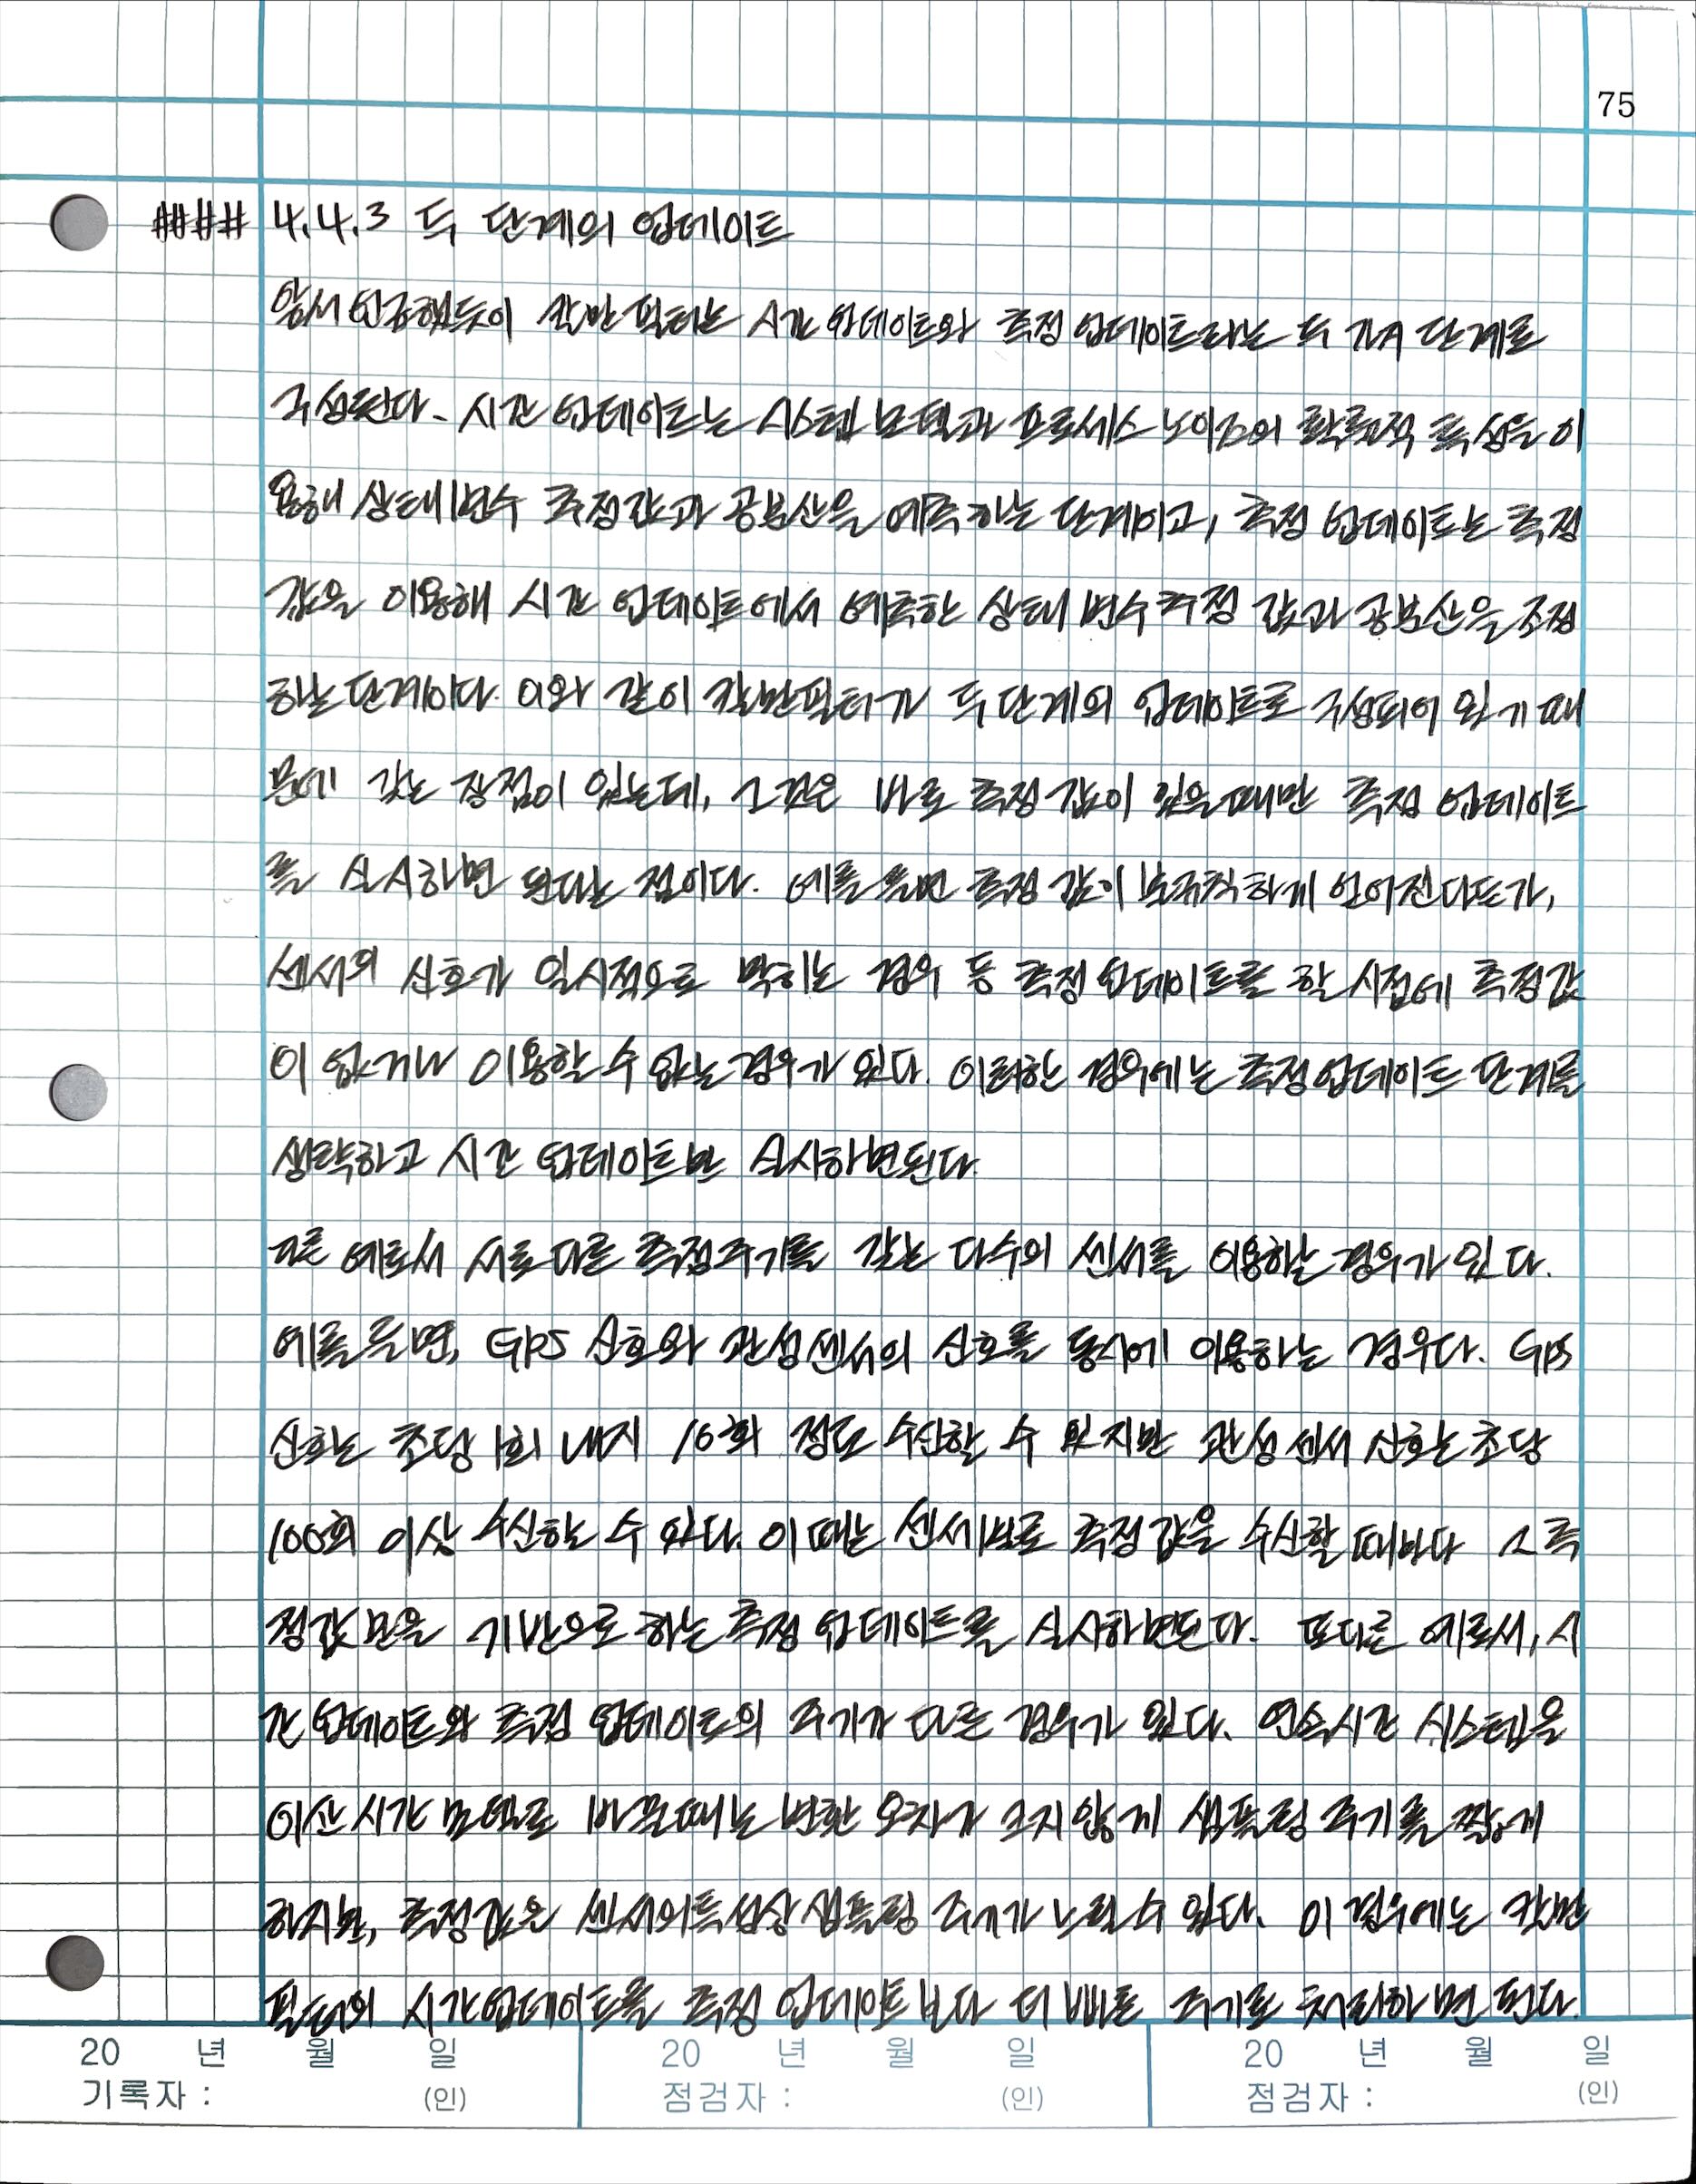 75
#### 4.4.3 두 단계의 업데이트
앞서 언급했듯이 칼만 필터는 시간 업데이트와 측정 업데이트라는 두 가지 단계로
구성된다. 시간 업데이트는 시스템 모델과 프로세스 노이즈의 확률적 특성을 이
용해 상태변수 추정값과 공분산을 예측하는 단계이고, 측정 업데이트는 측정
값을 이용해 시간 업데이트에서 예측한 상태 변수 추정 값과 공분산을 조정
하는 단계이다. 이와 같이 칼만필터가 두 단계의 업데이트로 구성되어 있기 때
문에 갖는 장점이 있는데, 그것은 바로 측정 값이 있을 때만 측정 업데이트
를 실시하면 된다는 점이다. 예를 들면 측정 값이 불규칙하게 얻어진다든가,
센서의 신호가 일시적으로 막히는 경우 등 측정 업데이트를 할 시점에 측정값
이 없거나 이용할 수 없는 경우가 있다. 이러한 경우에는 측정 업데이트 단계를
생략하고 시간 업데이트만 실시하면된다
다른 예로써 서로 다른 측정주기를 갖는 다수의 센서를 이용하는 경우가 있다.
예를 들면, GPS 신호와 관성센서의 신호를 동시에 이용하는 경우다. GPS
신호는 초당 1회 내지 10회 정도 수신할 수 있지만 관성 센서 신호는 초당
100회 이상 수신하는 수 있다. 이 때는 센서별로 측정 값을 수신할 때마다 그 측
정값 만을 기반으로 하는 측정 업데이트를 실시하면된다. 또다른 예로써, 시
간 업데이트와 측정 업데이트의 주기가 다른 경우가 있다. 연속시간 시스템을
이산 시간 모델로 바꿀때는 변환 오차가 크지 않게 샘플링 주기를 짧게
하지만, 측정값은 센서의 특성상 샘플링 주기가 느릴 수 있다. 이 경우에는 칼만
필터의 시간업데이트를 측정 업데이트보다 더 빠른 주기로 처리하면 된다.
20 년 월 일 20 년 월 일 20 년 월 일
기록자 : (인) 점검자 : (인) 점검자 : (인)